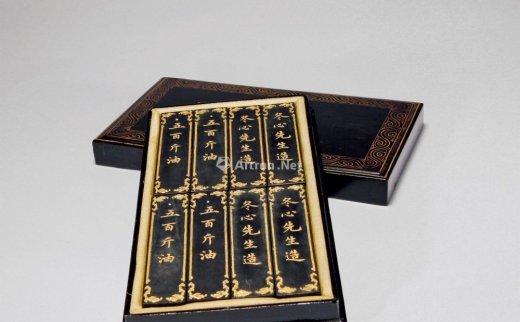 五百斤油
五百斤油
冬心先生造
冬心先生造
Artron.Net
五百斤油
五百斤油
冬心先生造
冬心先生造